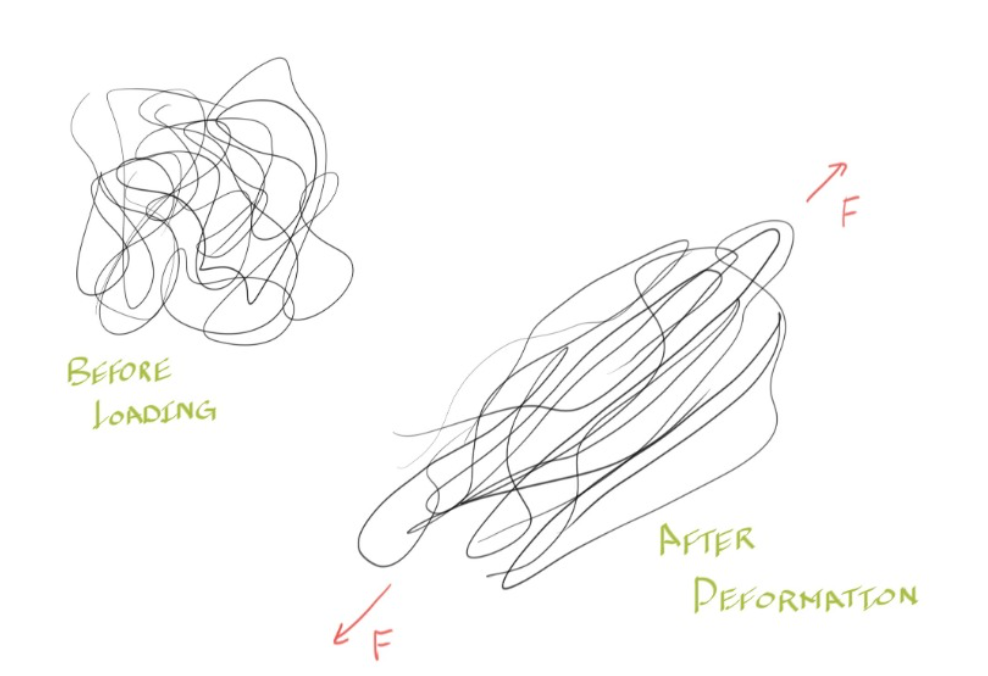 BEFORE
LOADING
F
AFTER
DEFORMATION
F